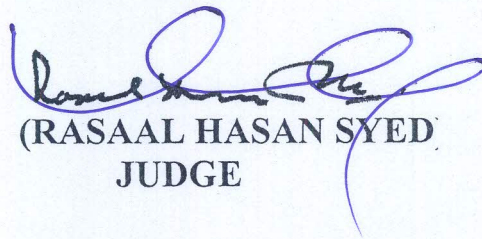 (RASAAL HASAN SYED)
JUDGE